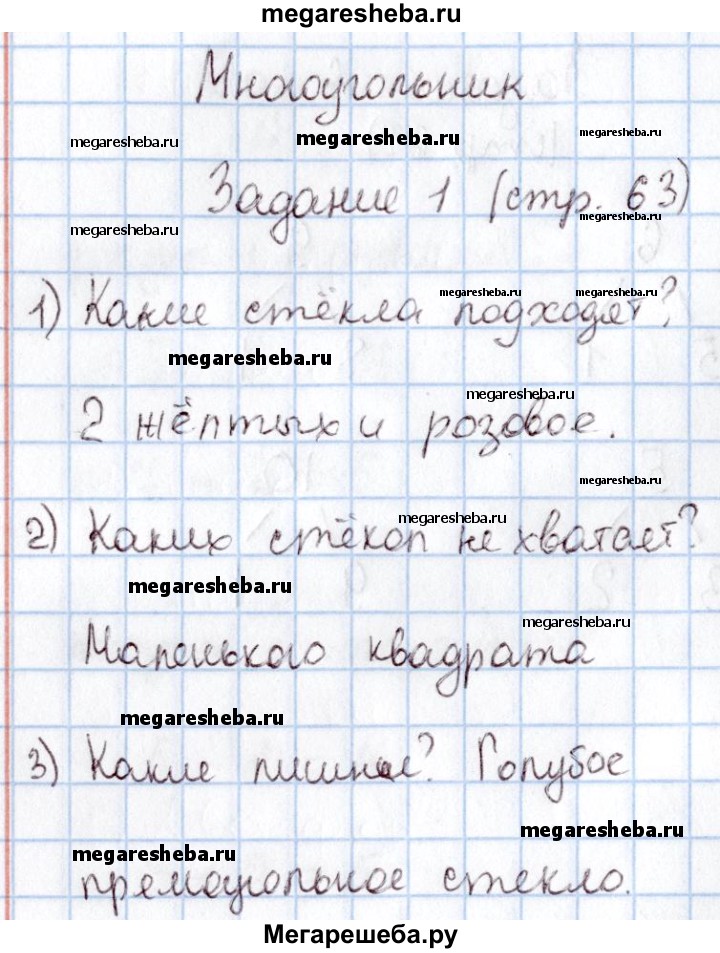 megaresheba.ru
Многоугольник
megaresheba.ru
megaresheba.ru
megaresheba.ru
Задание 1 (стр. 63)
megaresheba.ru
megaresheba.ru
megaresheba.ru
megaresheba.ru
1) Какие стёкла подходят?
megaresheba.ru
megaresheba.ru
2 жёлтых и розовое.
megaresheba.ru
megaresheba.ru
2) Каких стёкол не хватает?
megaresheba.ru
megaresheba.ru
Маленького квадрата
megaresheba.ru
3) Какие лишние? Голубое
megaresheba.ru
megaresheba.ru
прямоугольное стекло.
Мегарешеба.ру